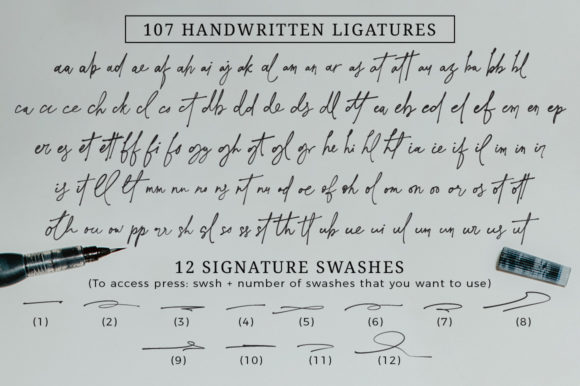 107 HANDWRITTEN LIGATURES
aa ab ad ae af ah ai aj ak al am an ar as at att au az ba bb bl
ca cc ce ch ck cl co ct db dd de ds dl dt ea eb ed el ef em en ep
er es et ett ff fi fo gy gh gt gl gr he hi hl ht ia ie if il im in ir
is it ll lt mm nn no ns nt nu od oe of oh ol om on oo or os ot ott
oth ou ow pp rr sh sl so ss st th tt ub ue ui ul um un ur us ut
12 SIGNATURE SWASHES
(To access press: swsh + number of swashes that you want to use)
(1) (2) (3) (4) (5) (6) (7) (8)
(9) (10) (11) (12)